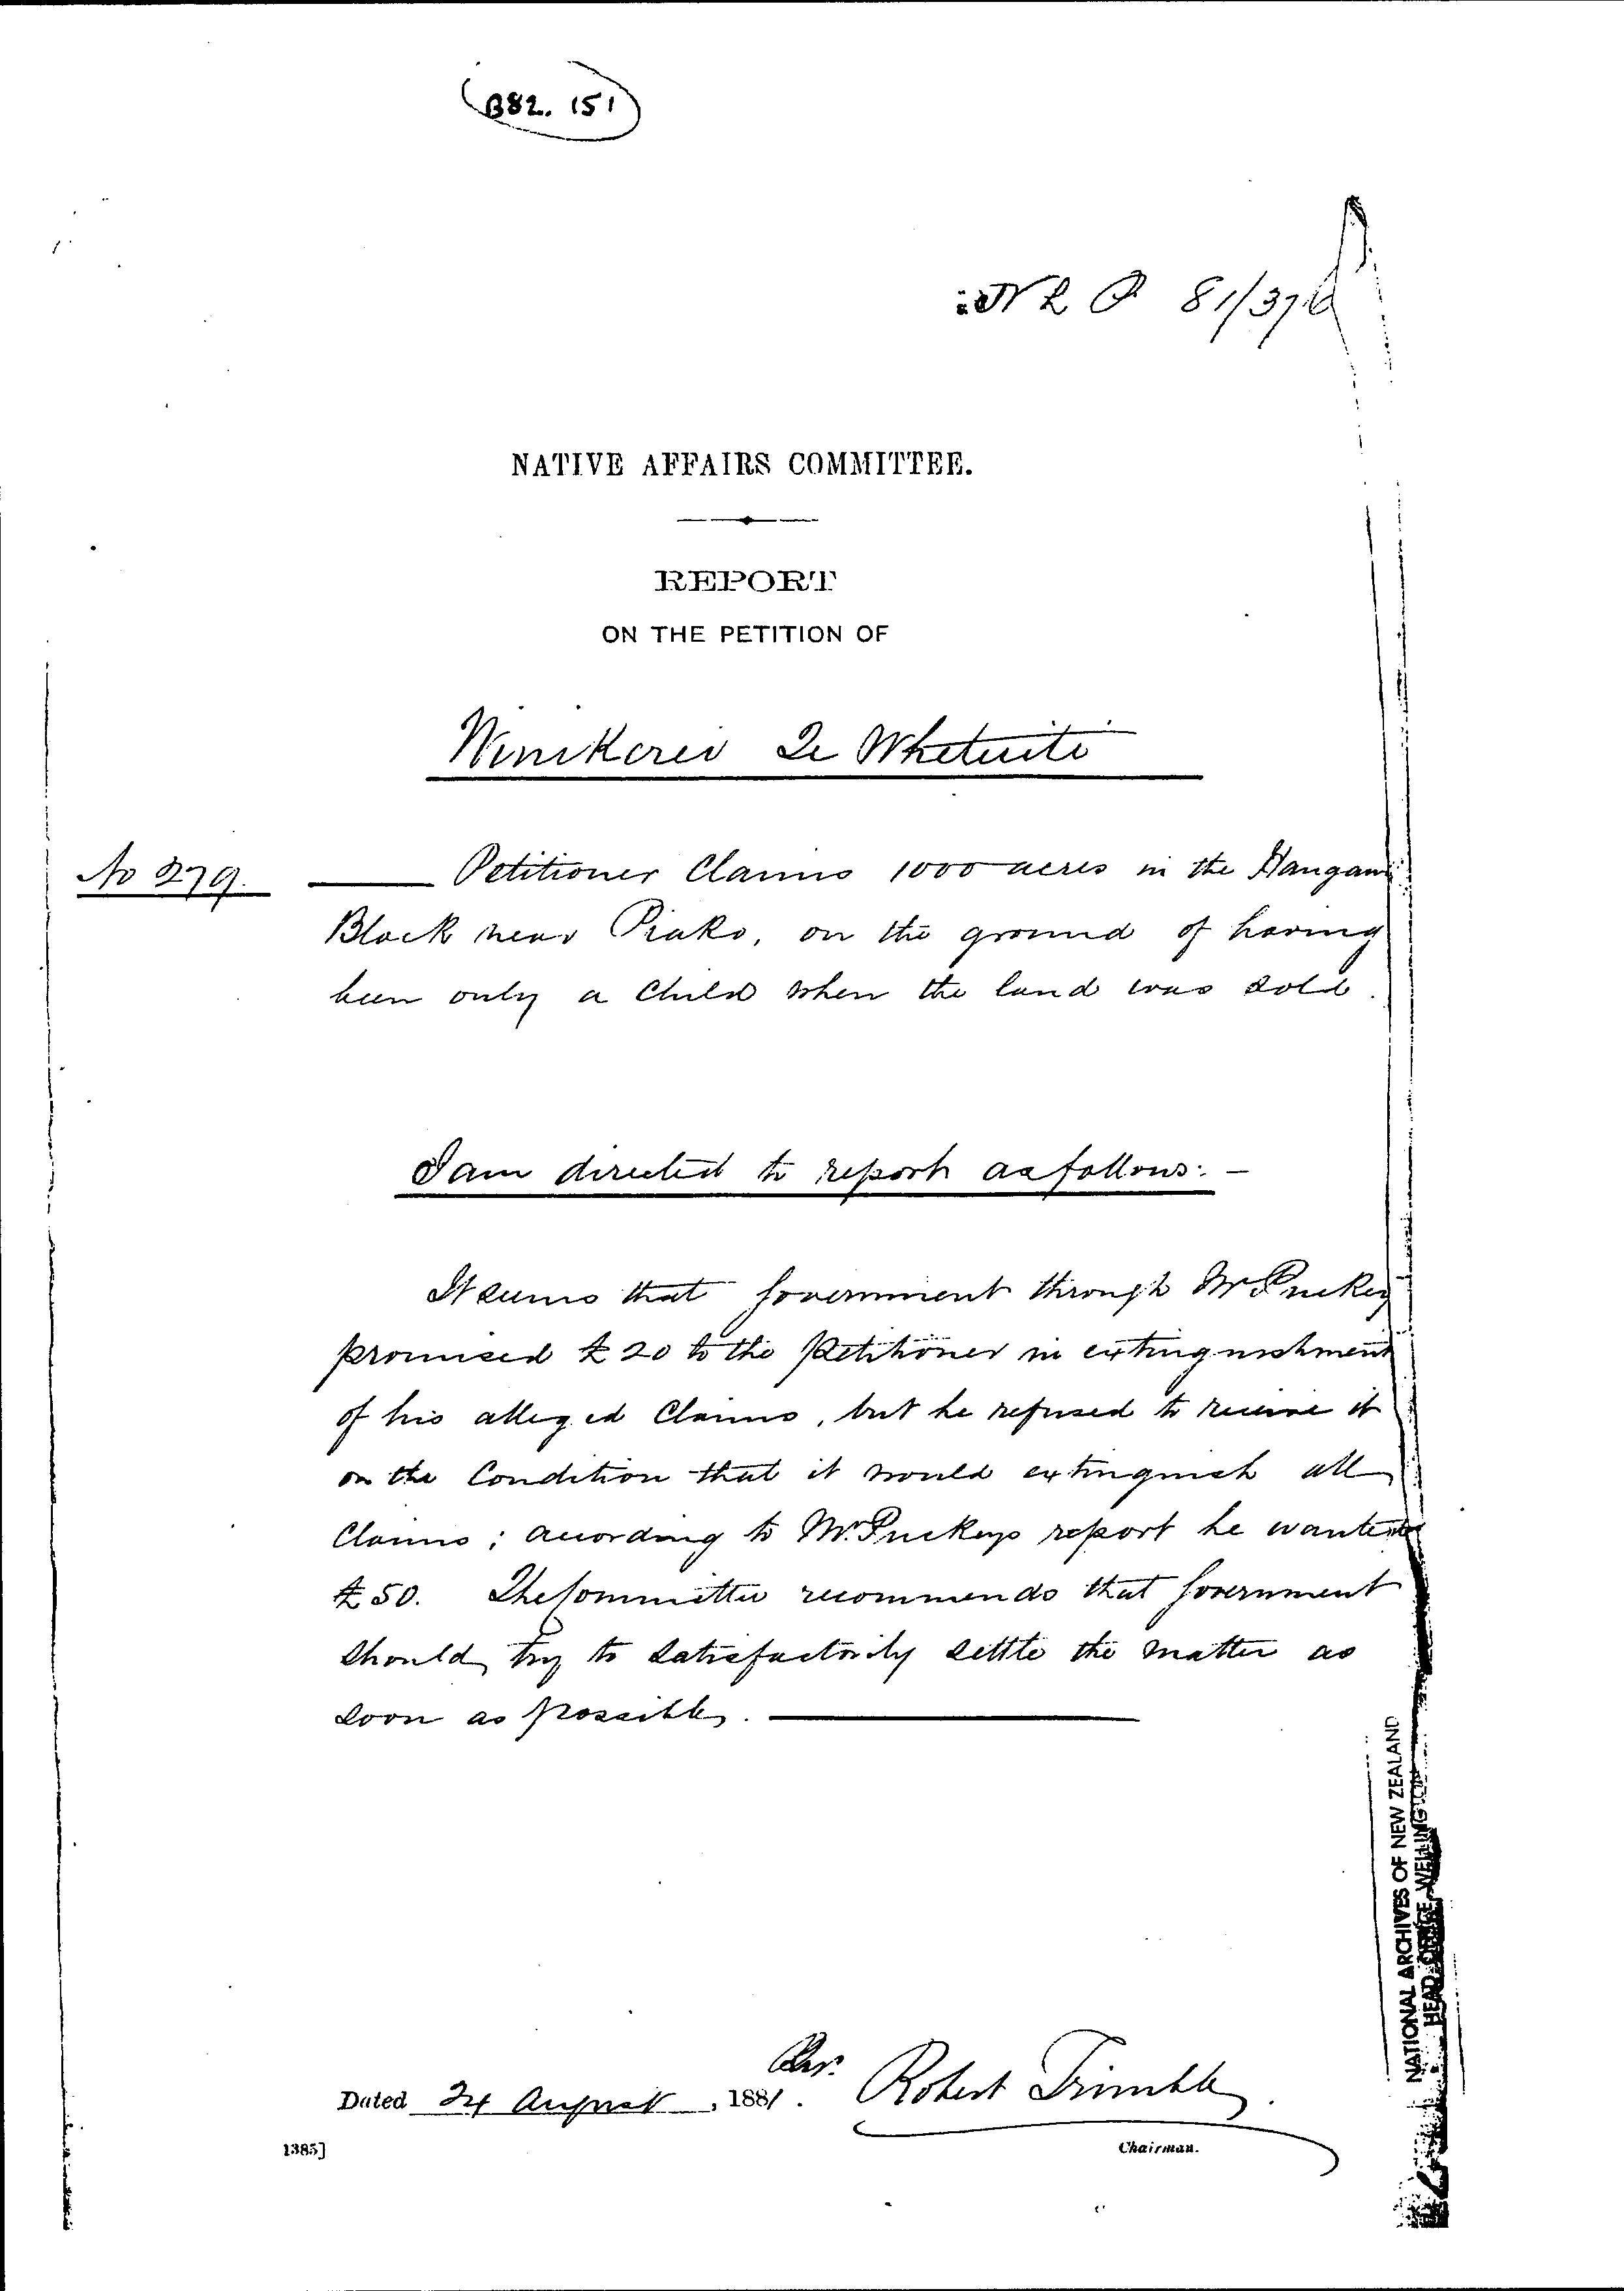 B82. 151
N L P 81/376
NATIVE AFFAIRS COMMITTEE.
REPORT
ON THE PETITION OF
Winikerei Te Whetuiti
No 279.
Petitioner Claims 1000 acres in the
Block near Piako, on the ground of having
been only a Child when the land was sold.
I am directed to report as follows: —
It seems that Government through Mr Puckey
promised £20 to the Petitioner in extinguishment
of his alleged Claims, but he refused to receive it
on the Condition that it would extinguish all
Claims; according to Mr. Puckeys report he wanted
£50. The Committee recommends that Government
should try to satisfactorily settle the matter as
soon as possible.
Robert Trimble
Dated 24 August, 1881.
1385]
Chairman.
NATIONAL ARCHIVES OF NEW ZEALAND
HEAD OFFICE WELLINGTON